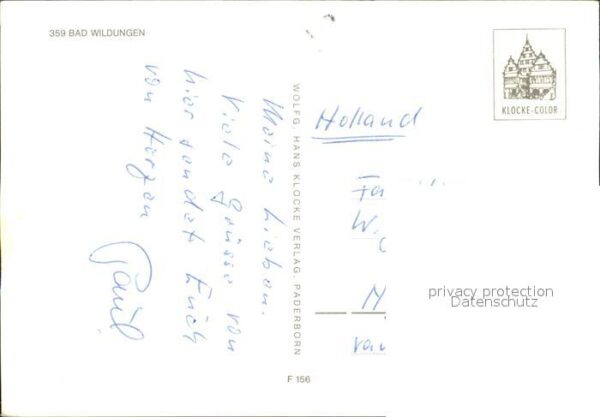 359 BAD WILDUNGEN
KLOCKE-COLOR
Meine Lieben.
Viele Grüsse von
hier sendet Euch
von Herzen
WOLFG. HANS KLOCKE VERLAG, PADERBORN
Holland
Fa
W.
M
van
privacy protection
Datenschutz
F 156